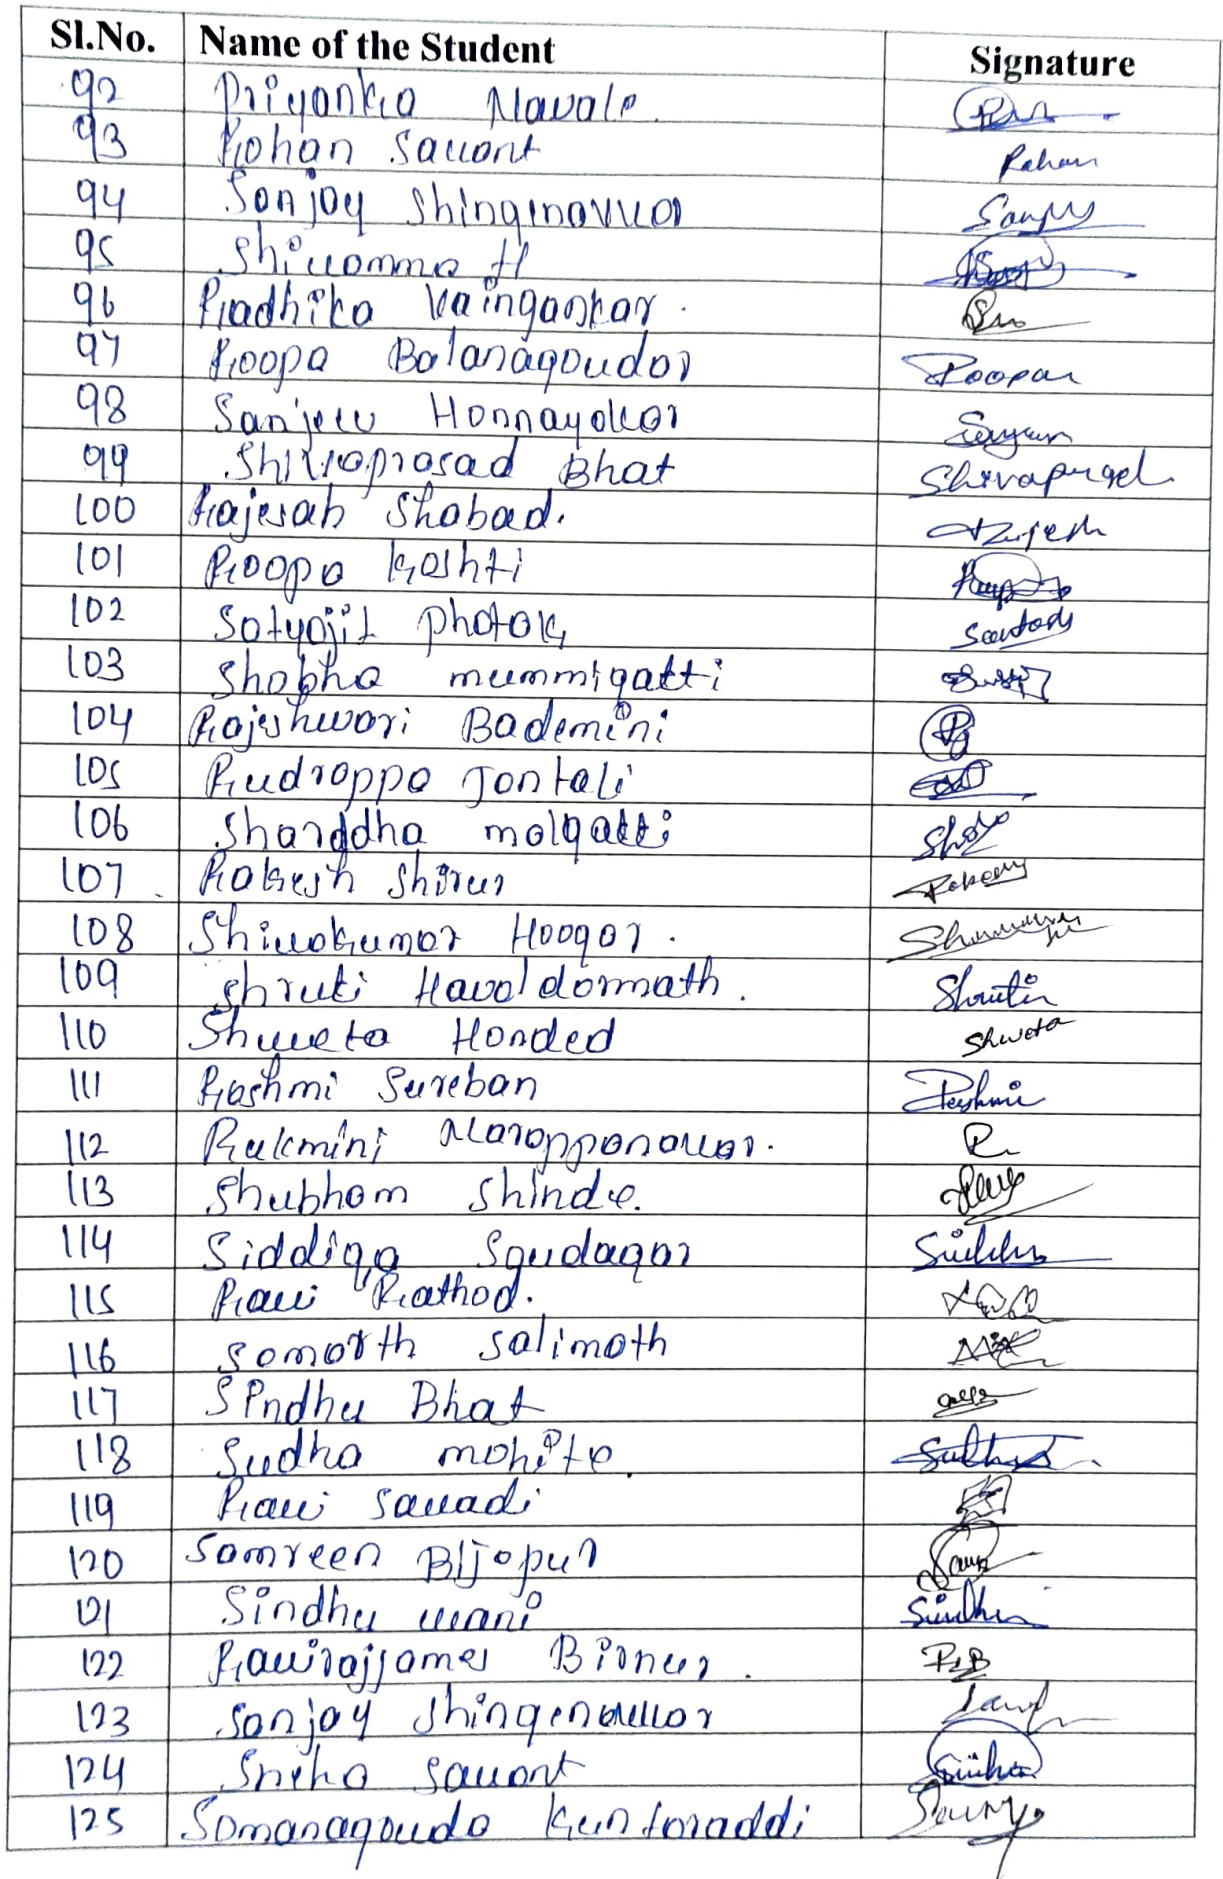 Sl.No. Name of the Student Signature
92 Priyanka Navale.
93 Rohan Savant Rohan
94 Sanjay Shinginavvar Sanjay
95 Shivamma H
96 Radhika Vaingankar.
97 Roopa Balanagoudar Roopa
98 Sanjeev Honnayakar
99 Shivaprasad Bhat
100 Rajesab Shabad.
101 Roopa Koshti
102 Satyajit Phatak
103 Shobha mummigatti
104 Rajeshwari Bademini
105 Rudrappa Jantali
106 Sharddha malgatti
107 Rakesh Shirur
108 Shivakumar Hoogar.
109 Shruti Havaldarmath. Shruti
110 Shweta Honded Shweta
111 Rashmi Sureban Rashmi
112 Rukmini Narapponavar. R
113 Shubham Shinde.
114 Siddiqa Soudagar
115 Ravi Rathod.
116 Somarth Salimath
117 Sindhu Bhat
118 Sudha mohite.
119 Ravi Savadi
120 Samreen Bijapur
121 Sindhu wani Sindhu
122 Ravirajjames Birnur. RJB
123 Sanjay Shingenavvar
124 Sneha Savant
125 Somanagouda Kuntoraddi